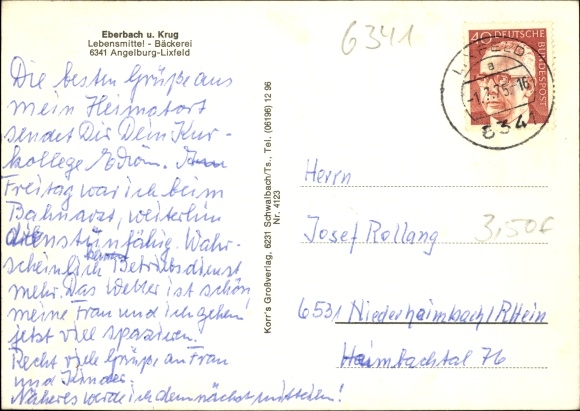 Eberbach u. Krug
Lebensmittel - Bäckerei
6341 Angelburg-Lixfeld
6341
40 DEUTSCHE BUNDESPOST
634
Die besten Grüße aus
mein Heimatort
sendet Dir Dein Kur-
kollege
Freitag war ich beim
Bahnarzt, weiterhin
dienstunfähig. Wahr-
scheinlich kein Betriebsdienst
mehr. Das Wetter ist schön
meine Frau und ich gehen
jetzt viel spazieren.
Recht viele Grüße an Frau
und Kinder.
Näheres werde ich demnächst mitteilen!
Korr's Großverlag, 6231 Schwalbach/Ts., Tel. (06196) 12 96
Nr. 4123
Herrn
Josef Rollang
3,50€
6531 Niederheimbach/Rhein
Heimbachtal 76